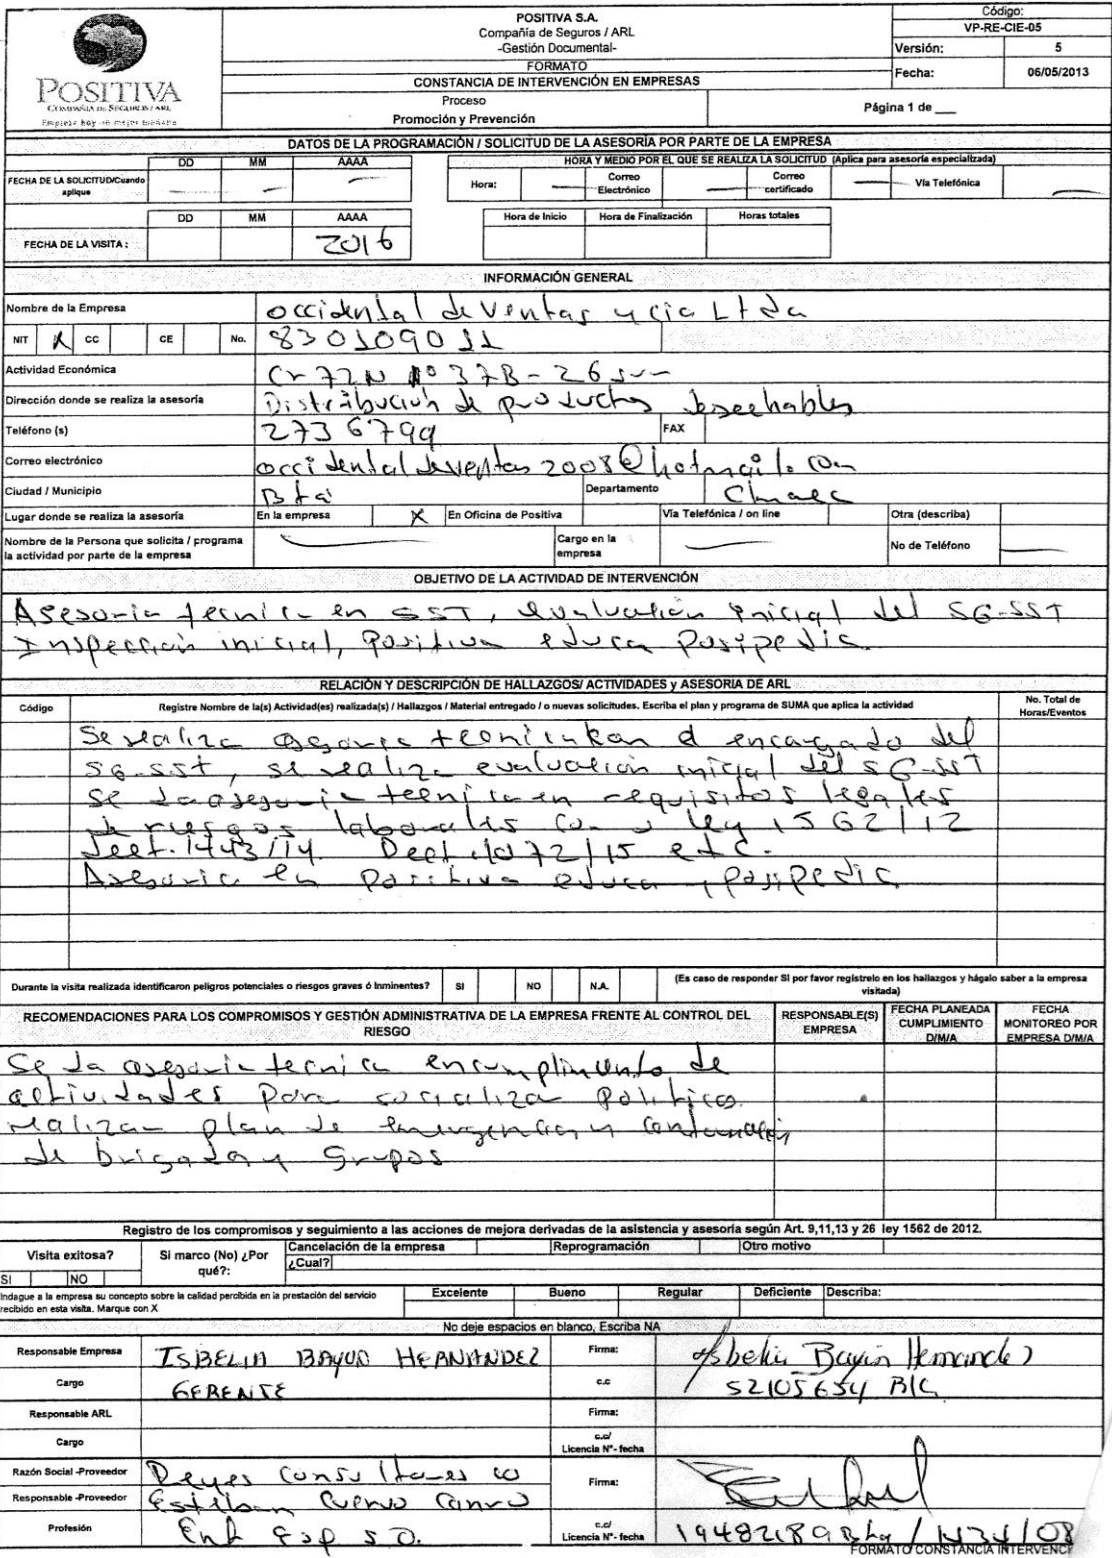 POSITIVA
COMPAÑIA DE SEGUROS / ARL
POSITIVA S.A.
Compañia de Seguros / ARL
-Gestión Documental-
FORMATO
CONSTANCIA DE INTERVENCIÓN EN EMPRESAS
Proceso
Promoción y Prevención
Código:
VP-RE-CIE-05
Versión: 5
Fecha: 06/05/2013
Página 1 de __
DATOS DE LA PROGRAMACIÓN / SOLICITUD DE LA ASESORÍA POR PARTE DE LA EMPRESA
DD MM AAAA HORA Y MEDIO POR EL QUE SE REALIZA LA SOLICITUD (Aplica para asesoría especializada)
FECHA DE LA SOLICITUD/Cuando aplique — — — Hora: — Correo Electrónico — Correo certificado — Vía Telefónica —
DD MM AAAA Hora de Inicio Hora de Finalización Horas totales
FECHA DE LA VISITA : 2016
INFORMACIÓN GENERAL
Nombre de la Empresa occidental de ventas y cia Ltda
NIT X CC CE No. 830109011
Actividad Económica Cr 72N Nº 37B-26 sur
Dirección donde se realiza la asesoría Distribución de productos desechables
Teléfono (s) 2736799 FAX
Correo electrónico occidentaldeventas2008@hotmail.com
Ciudad / Municipio Bta Departamento
Lugar donde se realiza la asesoría En la empresa X En Oficina de Positiva Vía Telefónica / on line Otra (describa)
Nombre de la Persona que solicita / programa la actividad por parte de la empresa — Cargo en la empresa — No de Teléfono —
OBJETIVO DE LA ACTIVIDAD DE INTERVENCIÓN
Asesoria tecnica en SST, evaluación inicial del SG-SST
Inspección inicial, positiva educa posipedia
RELACIÓN Y DESCRIPCIÓN DE HALLAZGOS/ ACTIVIDADES y ASESORIA DE ARL
Código Registre Nombre de la(s) Actividad(es) realizada(s) / Hallazgos / Material entregado / o nuevas solicitudes. Escriba el plan y programa de SUMA que aplica la actividad No. Total de Horas/Eventos
Se realiza asesoria tecnica con el encargado del
SG-SST, se realiza evaluación inicial del SG-SST
Se da asesoria tecnica en requisitos legales
de riesgos laborales como ley 1562/12
Dect. 1443/14. Dect. 1072/15 etc.
Asesoria en Positiva educa y posipedia
Durante la visita realizada identificaron peligros potenciales o riesgos graves ó inminentes? SI NO N.A. (Es caso de responder SI por favor regístrelo en los hallazgos y hágalo saber a la empresa visitada)
RECOMENDACIONES PARA LOS COMPROMISOS Y GESTIÓN ADMINISTRATIVA DE LA EMPRESA FRENTE AL CONTROL DEL RIESGO RESPONSABLE(S) EMPRESA FECHA PLANEADA CUMPLIMIENTO D/M/A FECHA MONITOREO POR EMPRESA D/M/A
Se da asesoria tecnica en cumplimiento de
actividades para socializar politicas
realizar plan de emergencia y
de brigada y Grupos
Registro de los compromisos y seguimiento a las acciones de mejora derivadas de la asistencia y asesoría según Art. 9,11,13 y 26 ley 1562 de 2012.
Visita exitosa? Si marco (No) ¿Por qué?: Cancelación de la empresa Reprogramación Otro motivo
SI NO ¿Cual?
Indague a la empresa su concepto sobre la calidad percibida en la prestación del servicio recibido en esta visita. Marque con X Excelente Bueno Regular Deficiente Describa:
No deje espacios en blanco, Escriba NA
Responsable Empresa ISBELIA BAYON HERNANDEZ Firma: Isbelia Bayón Hernandez
Cargo GERENTE c.c 52105654 B/G
Responsable ARL Firma:
Cargo c.c/ Licencia Nº- fecha
Razón Social -Proveedor Reyes Consultores co Firma:
Responsable -Proveedor Esteban Cuervo
Profesión Enf Esp S.O. c.c/ Licencia Nº- fecha 19482189 Bta / 1434/08
FORMATO CONSTANCIA INTERVENCI